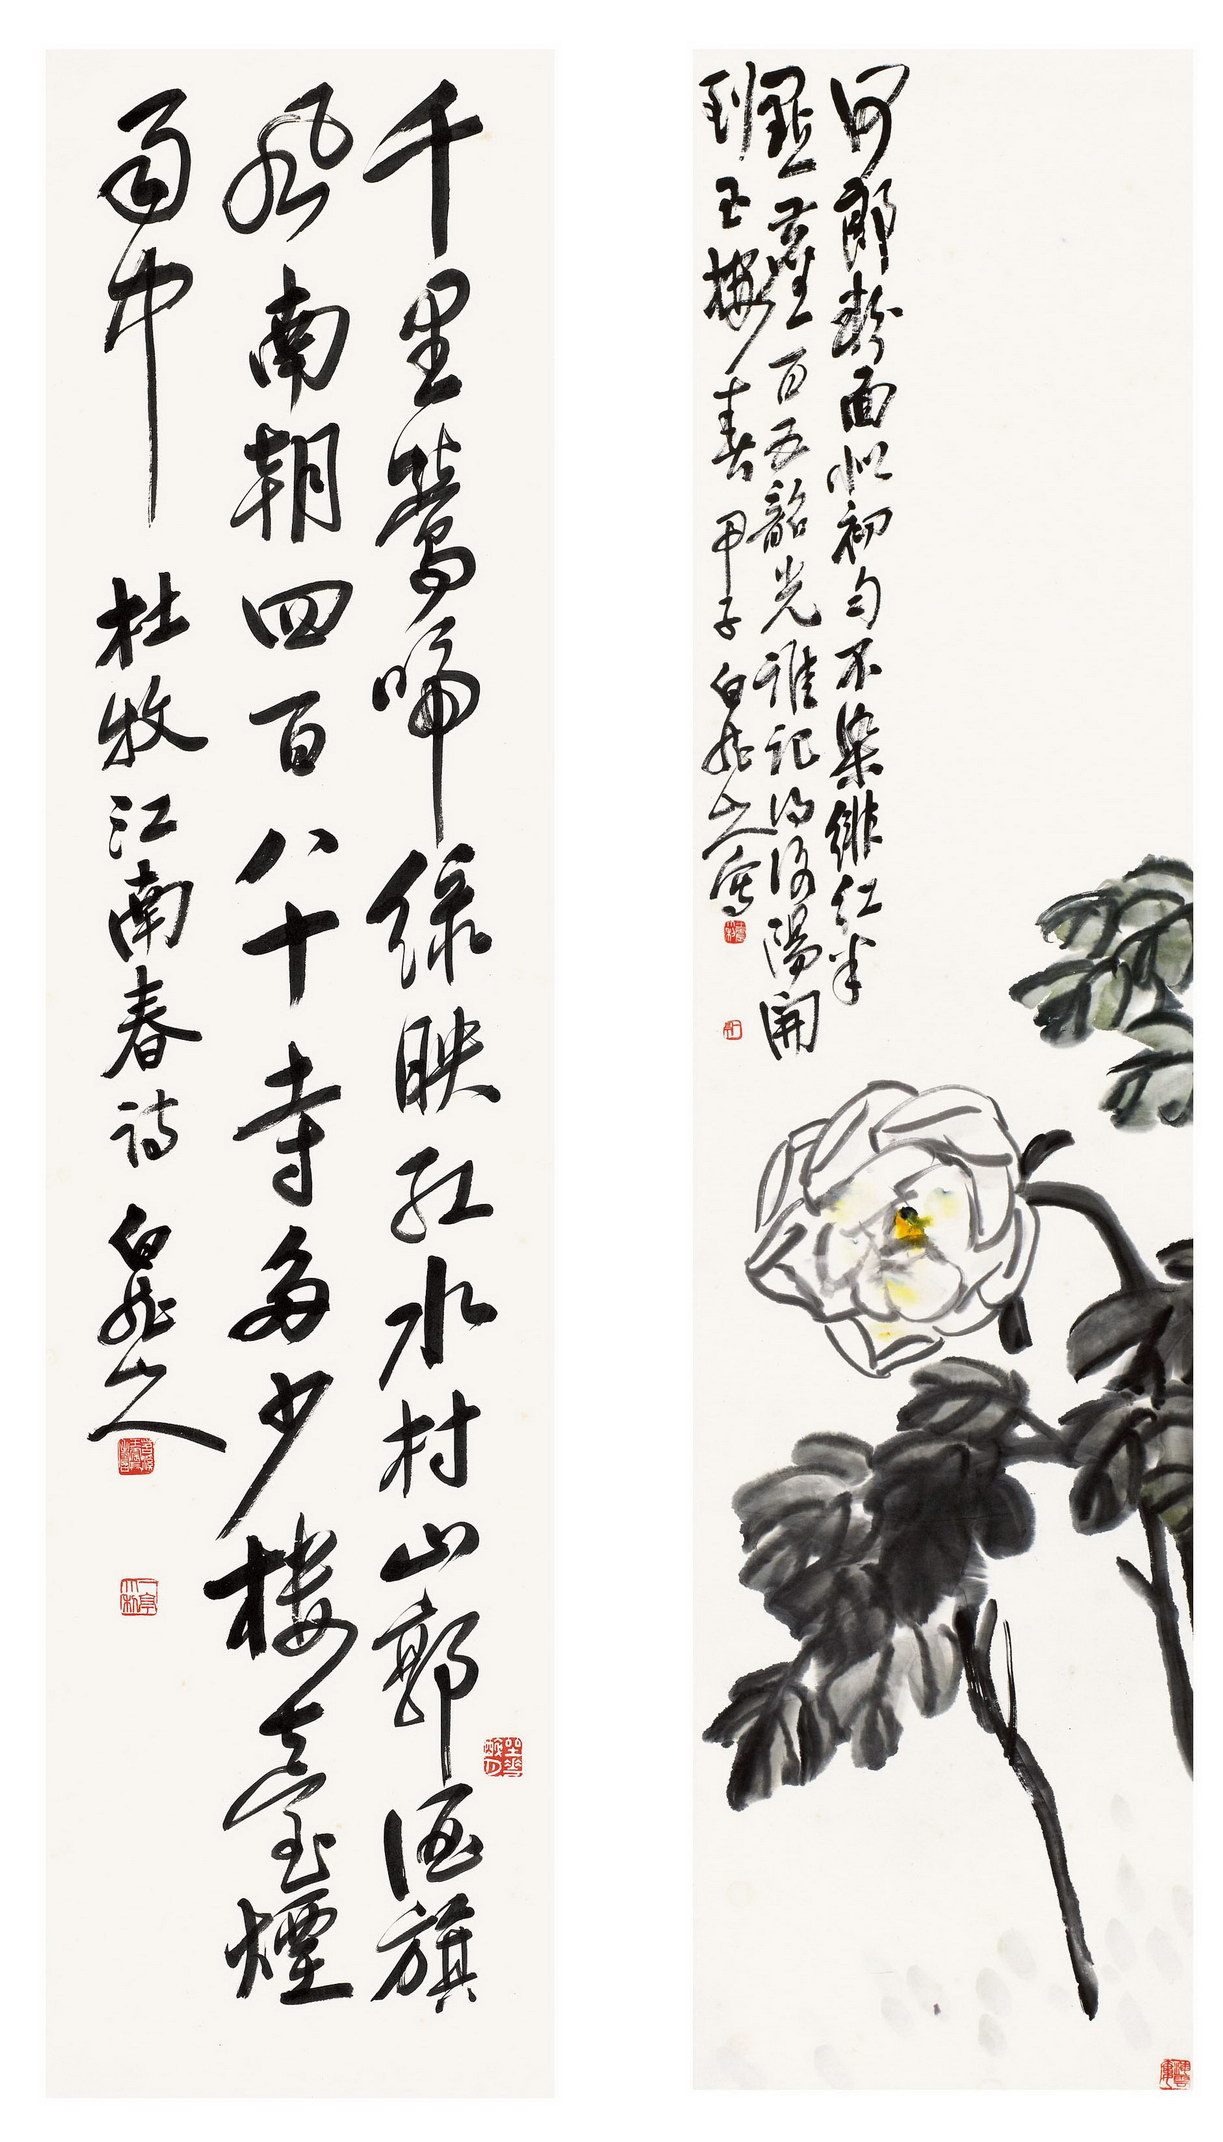 千里鶯啼緑映紅水村山郭酒旗
風南朝四百八十寺多少樓臺煙
雨中 杜牧江南春詩 白龍山人
何郎粉面似初勻不染緋紅半
點塵百五韶光誰記得洛陽開
到玉樓春 甲子白龍山人寫